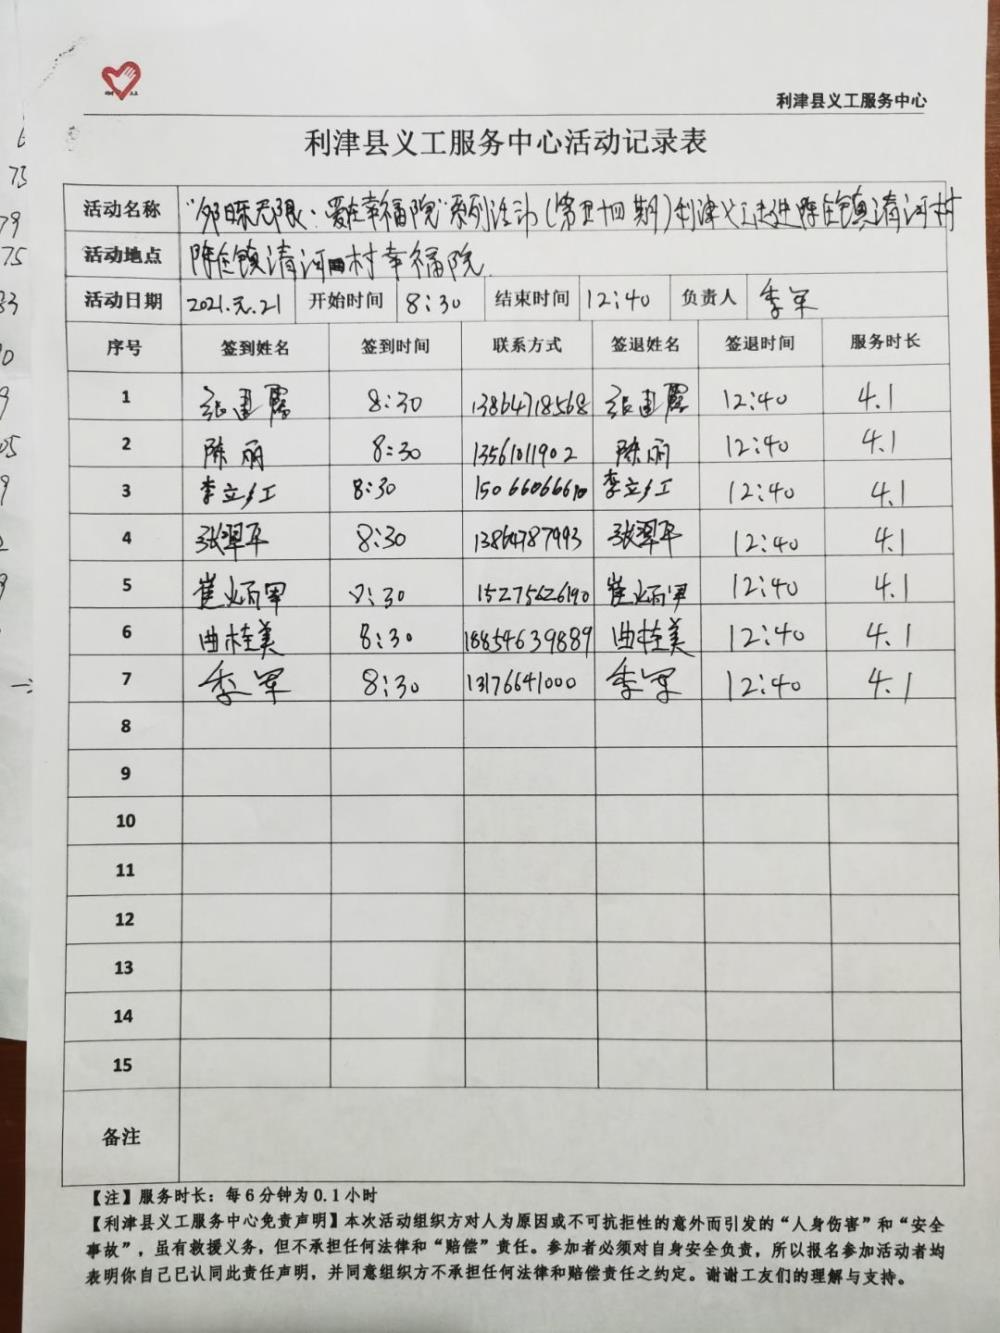 利津县义工服务中心
利津县义工服务中心活动记录表
活动名称 "夕阳无限·爱在幸福院"系列活动(第五十四期)利津义工走进陈庄镇清河村
活动地点 陈庄镇清河村幸福院
活动日期 2021.元.21 开始时间 8:30 结束时间 12:40 负责人 季军
序号 签到姓名 签到时间 联系方式 签退姓名 签退时间 服务时长
1 8:30 13864718568 12:40 4.1
2 陈丽 8:30 13561011902 陈丽 12:40 4.1
3 李立红 8:30 15066066610 李立红 12:40 4.1
4 张翠平 8:30 13864787993 张翠平 12:40 4.1
5 8:30 15275626190 12:40 4.1
6 曲桂美 8:30 18854639889 曲桂美 12:40 4.1
7 季军 8:30 13176641000 季军 12:40 4.1
8
9
10
11
12
13
14
15
备注
【注】服务时长：每6分钟为0.1小时
【利津县义工服务中心免责声明】本次活动组织方对人为原因或不可抗拒性的意外而引发的“人身伤害”和“安全
事故”，虽有救援义务，但不承担任何法律和“赔偿”责任。参加者必须对自身安全负责，所以报名参加活动者均
表明你自己已认同此责任声明，并同意组织方不承担任何法律和赔偿责任之约定。谢谢工友们的理解与支持。